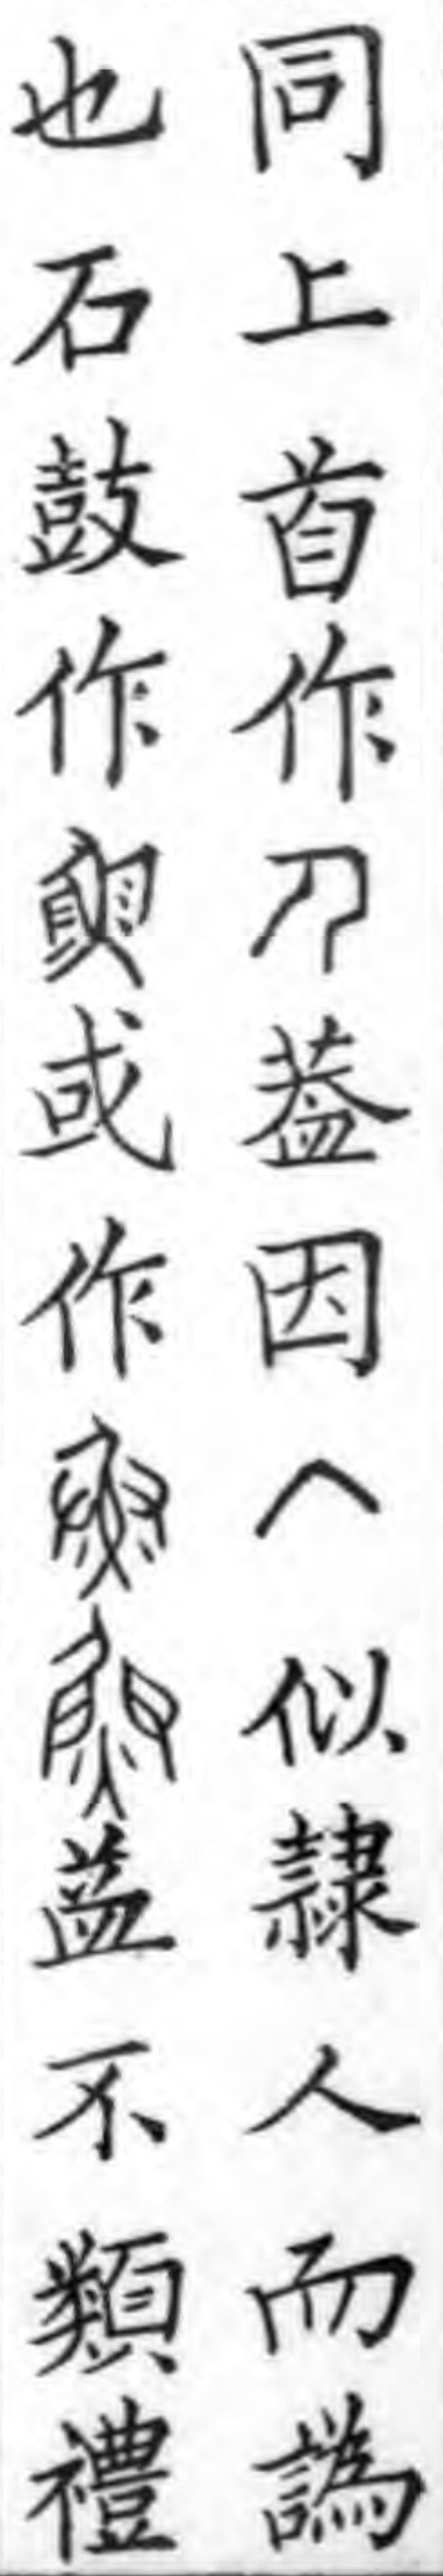 同上首作葢因似隸人而譌
也石鼓作或作葢不類禮